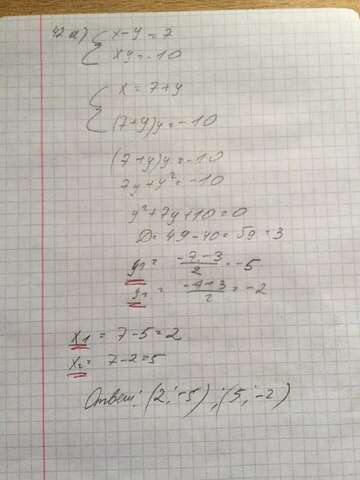 42 a) { x-y=7
xy=-10
{ x = 7+y
(7+y)y=-10
(7+y)y=-10
7y+y²=-10
y²+7y+10=0
D=49-40=√9=3
y₁= -7-3/2=-5
y₂= -7+3/2=-2
x₁ = 7-5=2
x₂= 7-2=5
Ответ: (2;-5);(5;-2)